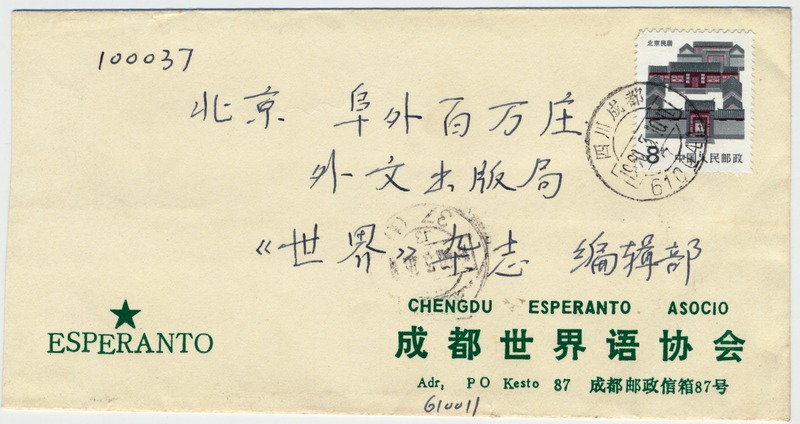 100037
北京民居
8
中国人民邮政
四川 成都
北京 阜外百万庄
外文出版局
《世界》杂志 编辑部
ESPERANTO
CHENGDU ESPERANTO ASOCIO
成都世界语协会
Adr: PO Kesto 87 成都邮政信箱87号
610011